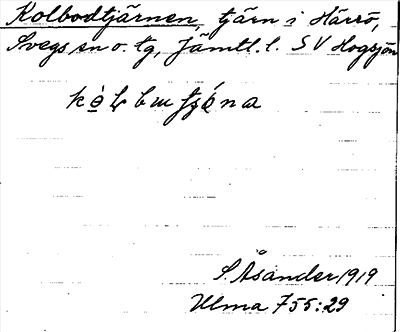 Kolbodtjärnen, tjärn i Härrö,
Svegs sn o. tg, Jämtl. l. SV Hogsjön
S. Åsander 1919
Ulma 755:29